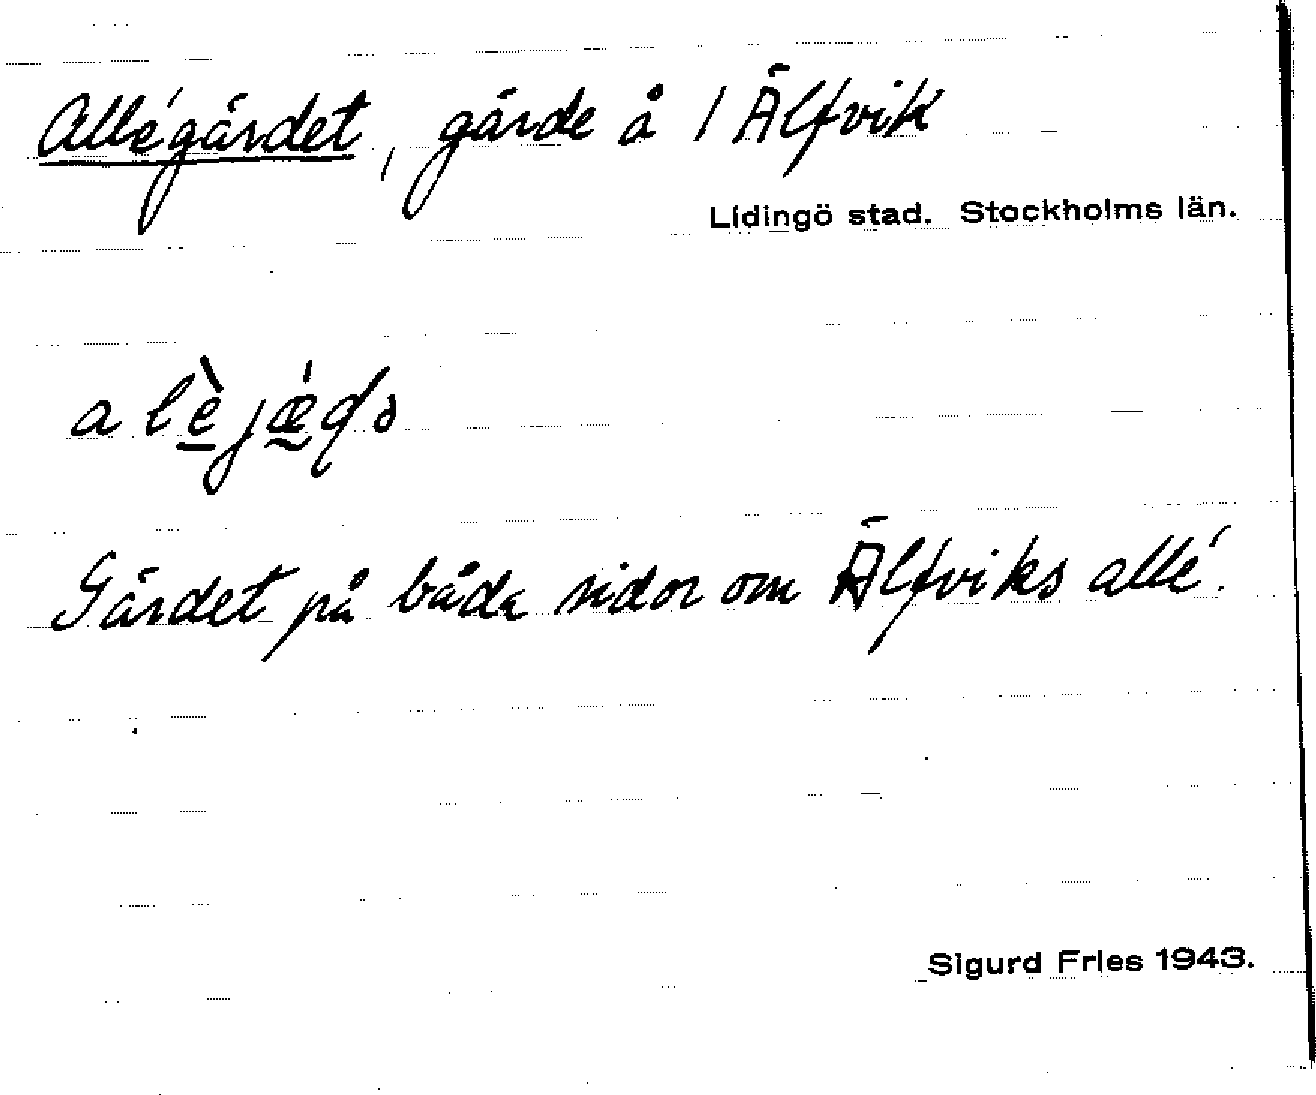 Allégärdet, gärde å 1 Älfvik
Lidingö stad. Stockholms län.
Gärdet på båda sidor om Älfviks allé.
Sigurd Fries 1943.